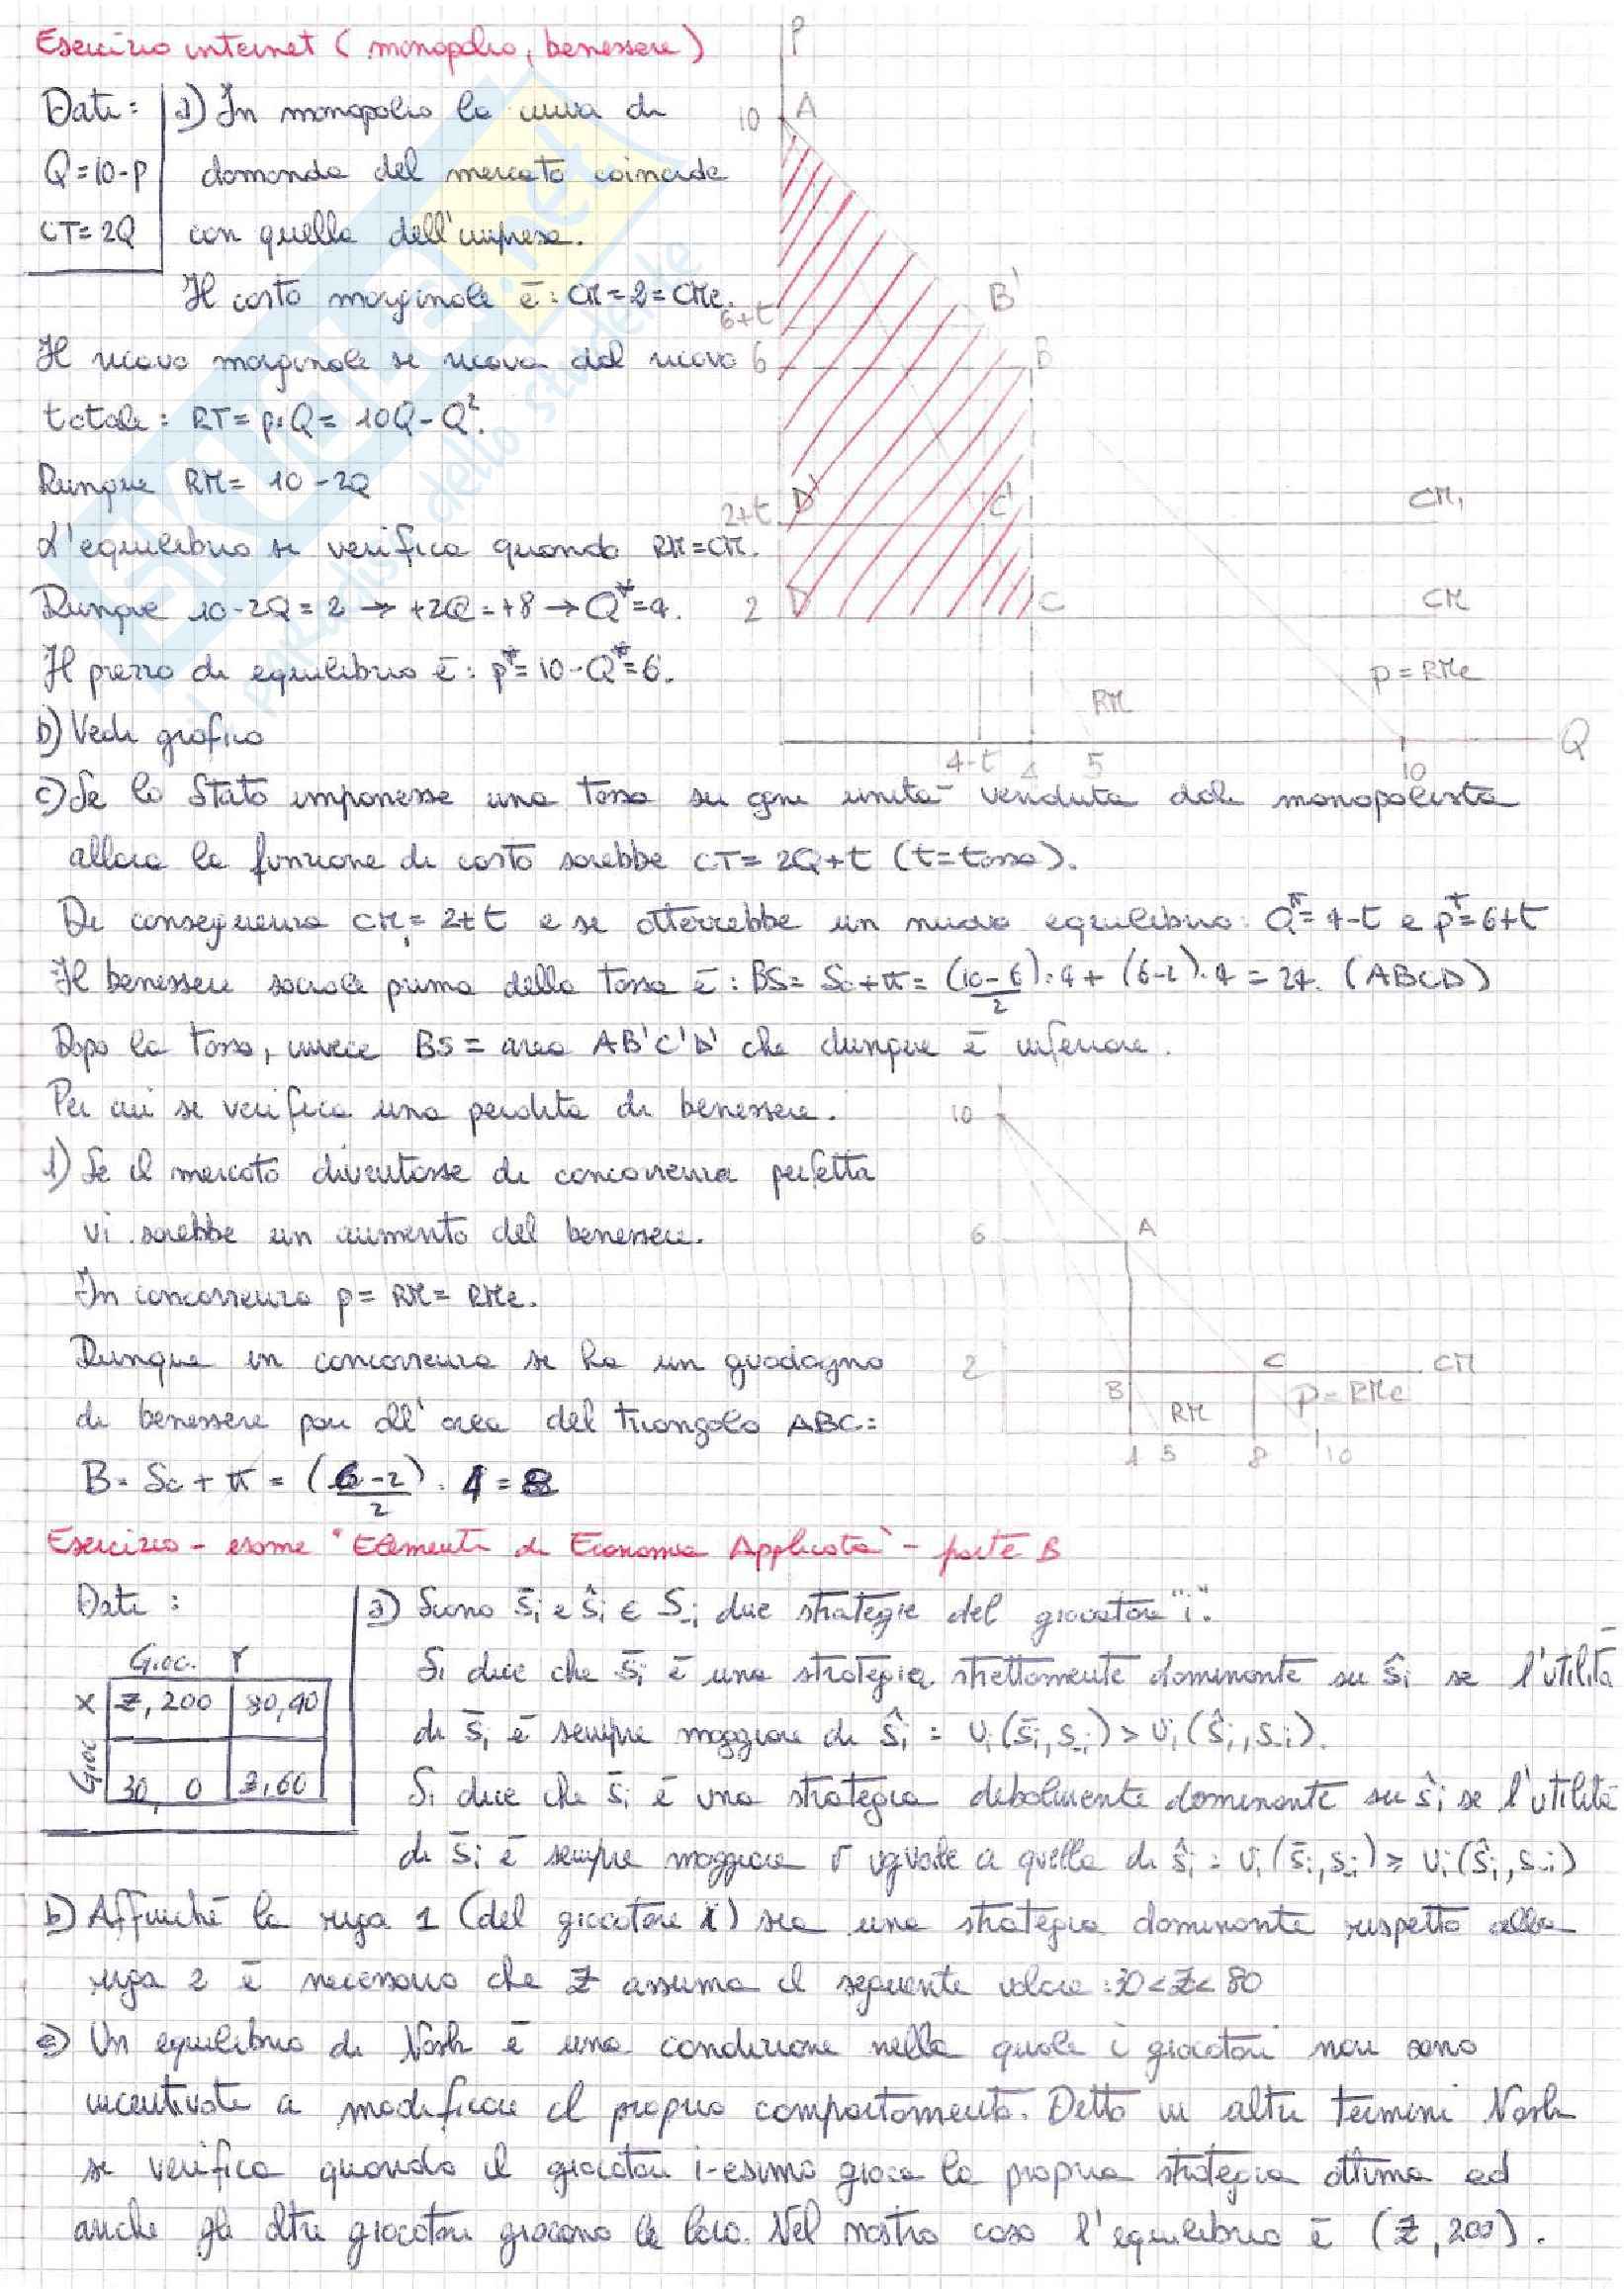 Esercizio internet (monopolio, benessere)
Dati:
Q=10-p
CT=2Q
a) In monopolio la curva di
domanda del mercato coincide
con quella dell'impresa.
Il costo marginale è: CM=2=CMe.
Il ricavo marginale si ricava dal ricavo
totale: RT=p·Q=10Q-Q².
Dunque RM=10-2Q
L'equilibrio si verifica quando RM=CM.
Dunque 10-2Q=2→+2Q=+8→Q*=4.
Il prezzo di equilibrio è: p*=10-Q*=6.
b) Vedi grafico
P
10 A
6+t B'
6 B
2+t D' C' CM₁
2 D C CM
p=RMe
RM
4-t 4 5 10 Q
c) Se lo Stato imponesse una tassa su ogni unità venduta dal monopolista
allora la funzione di costo sarebbe CT=2Q+t (t=tassa).
Di conseguenza CM₁=2+t e si otterrebbe un nuovo equilibrio: Q*=4-t e p*=6+t
Il benessere sociale prima della tassa è: BS=Sc+π=(10-6)/2·4+(6-2)·4=24. (ABCD)
Dopo la tassa, invece BS=area AB'C'D' che dunque è inferiore.
Per cui si verifica una perdita di benessere.
d) Se il mercato diventasse di concorrenza perfetta
vi sarebbe un aumento del benessere.
In concorrenza p=RM=RMe.
Dunque in concorrenza si ha un guadagno
di benessere pari all'area del triangolo ABC:
B=Sc+π=(6-2)/2·4=8
10
6 A
2 B C CM
RM p=RMe
4 5 8 10
Esercizio - esame "Elementi di Economia Applicata" - parte B
Dati:
Gioc. Y
X Z,200 80,40
Gioc 30, 0 Z,60
a) Siano s̄i e ŝi ∈ S-i due strategie del giocatore "i".
Si dice che s̄i è una strategia strettamente dominante su ŝi se l'utilità
di s̄i è sempre maggiore di ŝi = Ui(s̄i,s-i) > Ui(ŝi,s-i).
Si dice che s̄i è una strategia debolmente dominante su ŝi se l'utilità
di s̄i è sempre maggiore o uguale a quella di ŝi: Ui(s̄i,s-i) ≥ Ui(ŝi,s-i)
b) Affinché la riga 1 (del giocatore X) sia una strategia dominante rispetto alla
riga 2 è necessario che Z assuma il seguente valore: 30<Z<80
c) Un equilibrio di Nash è una condizione nella quale i giocatori non sono
incentivati a modificare il proprio comportamento. Detto in altri termini Nash
si verifica quando il giocatore i-esimo gioca la propria strategia ottima ed
anche gli altri giocatori giocano la loro. Nel nostro caso l'equilibrio è (Z,200).